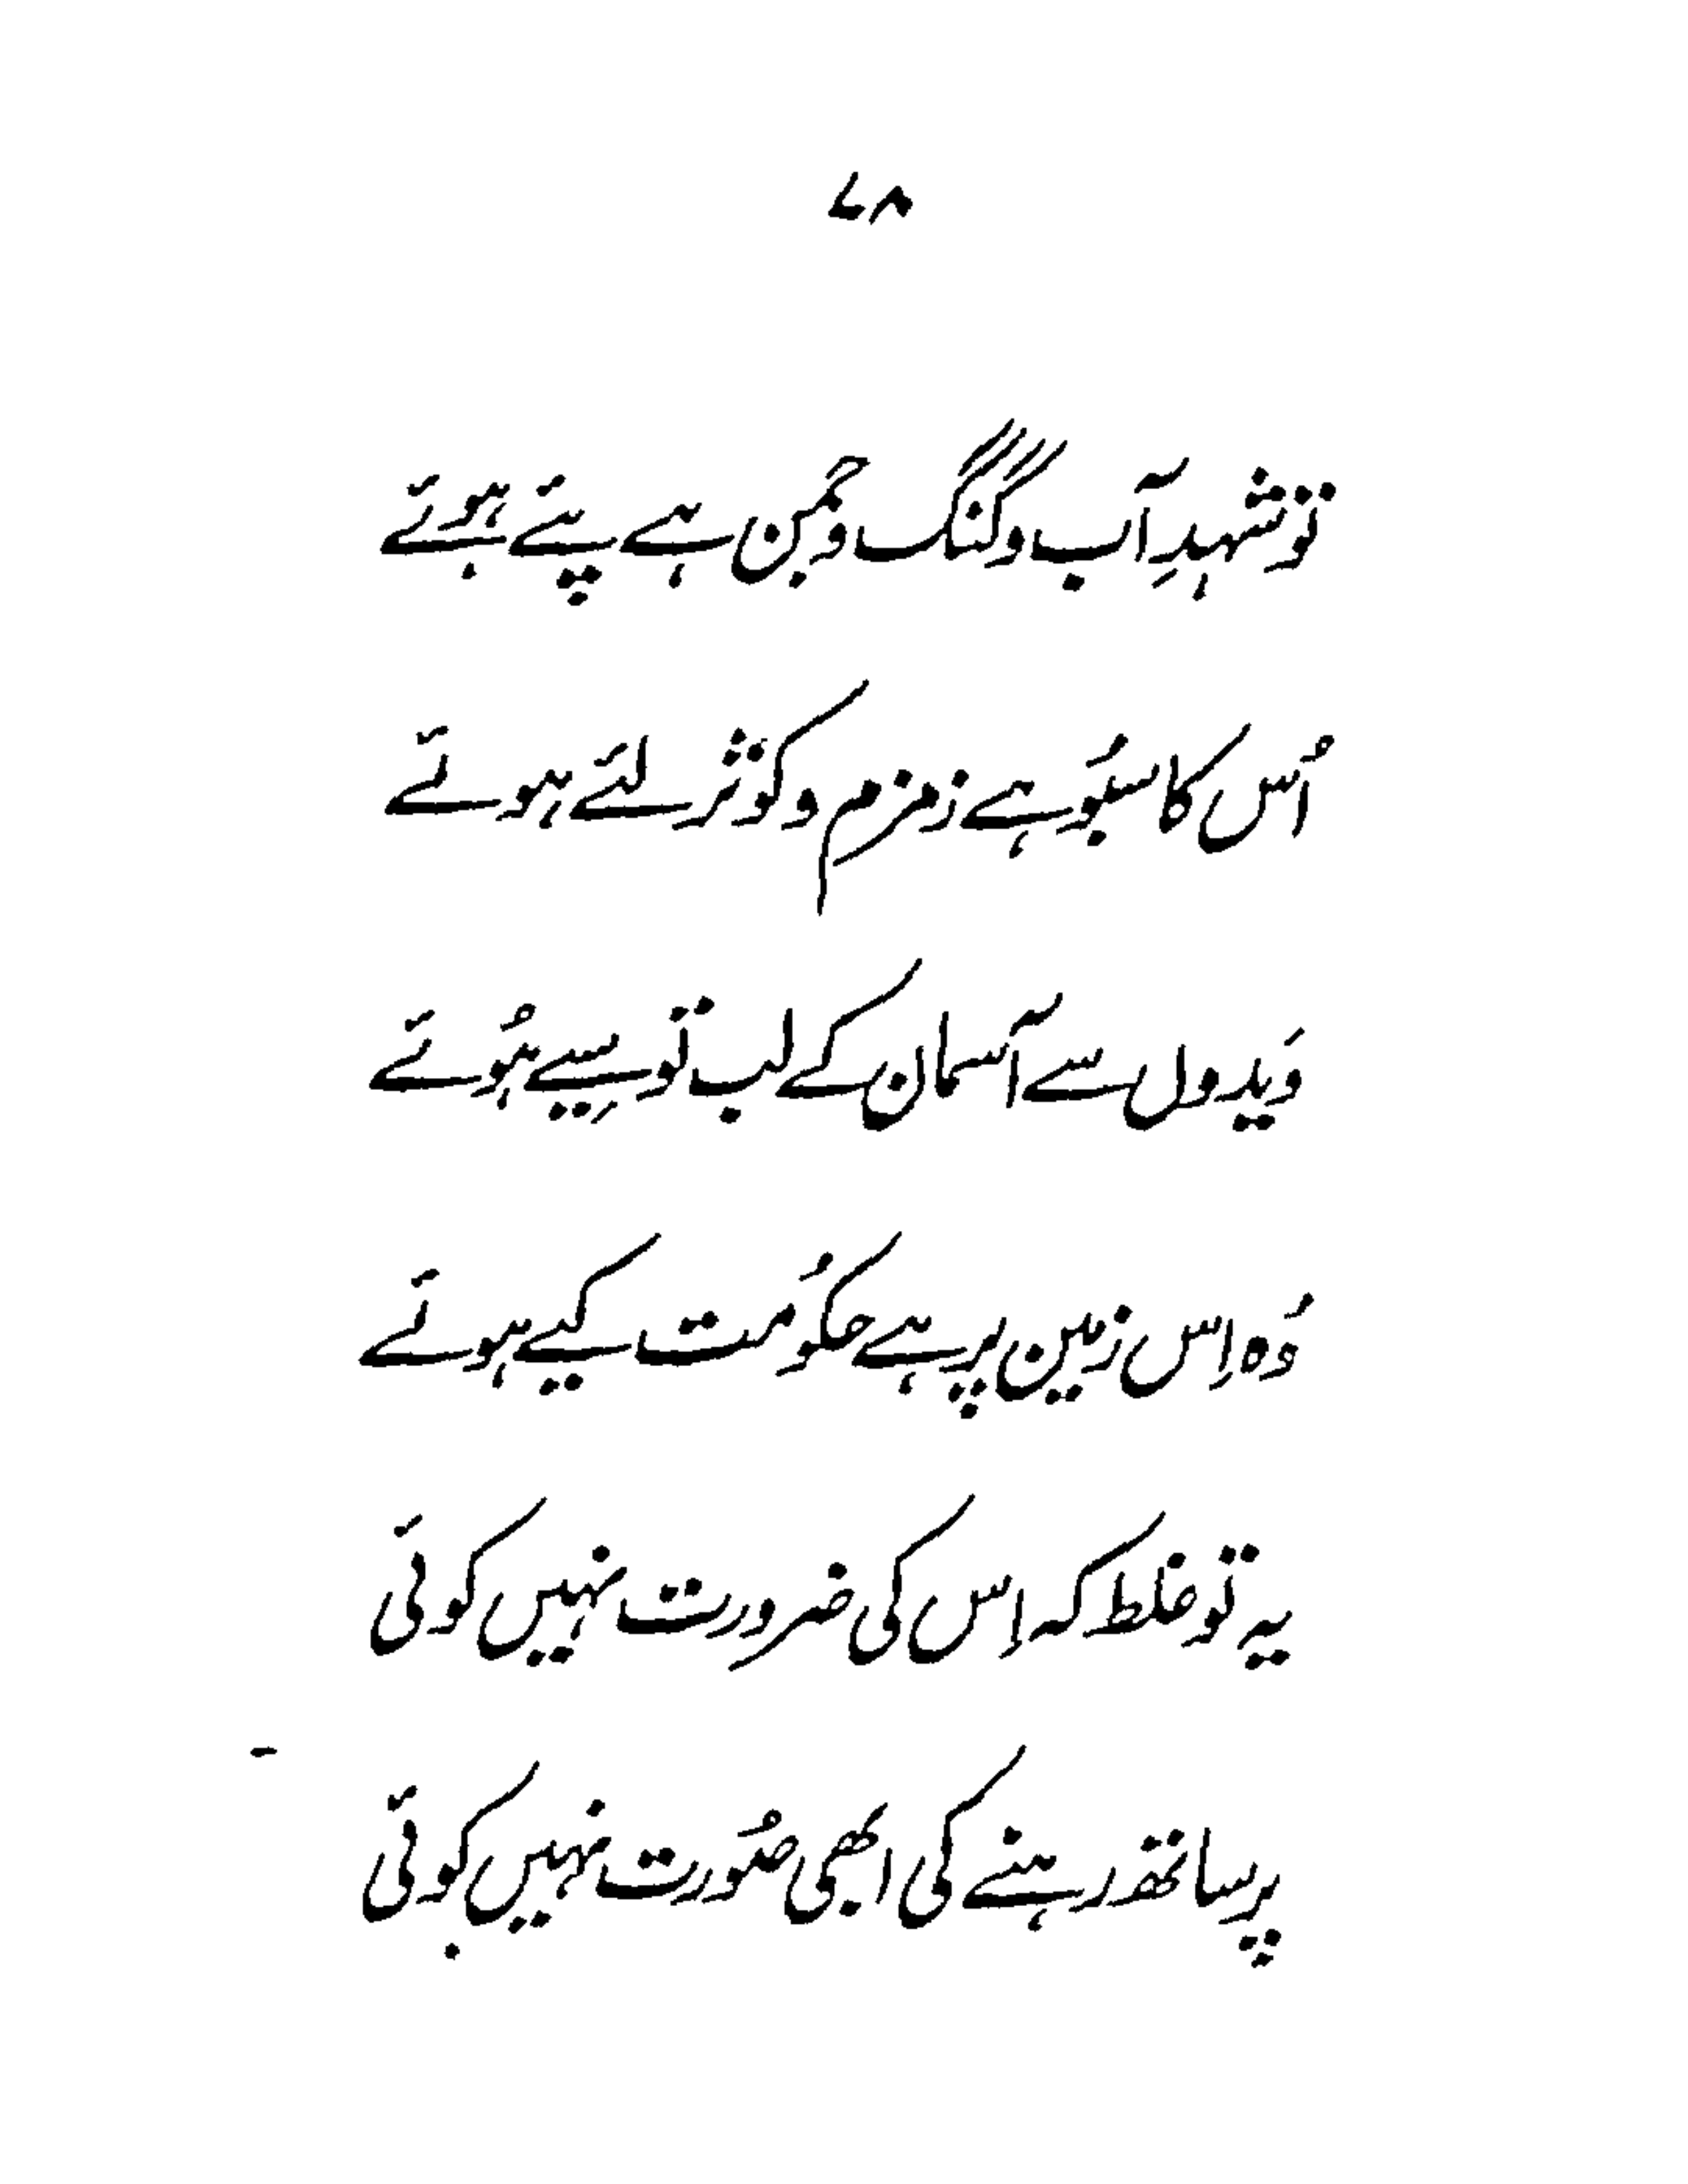 ۷۸
تو شہیدِ آب و گنگ و جمن ہے پئے ہوئے
اُس کا سبُو ہے زمزم و کوثر لئے ہوئے
وَیدوں سے آسمان کے لب تو سِیے ہُوئے
وُہ اِس زمین پر ہے حکُومت کیے ہوئے
یہ تو غلط کہ اِس کی ضرورت نہیں کوئی
پر ساتھ رہنے کی ابھی صُورت نہیں کوئی